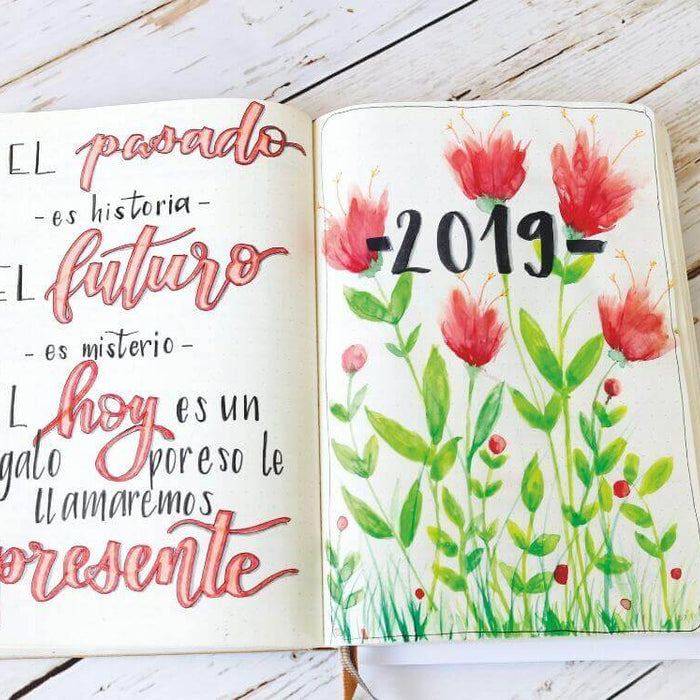 EL pasado
-es historia-
EL futuro
- es misterio -
L hoy es un
galo por eso le
llamaremos
presente
-2019-